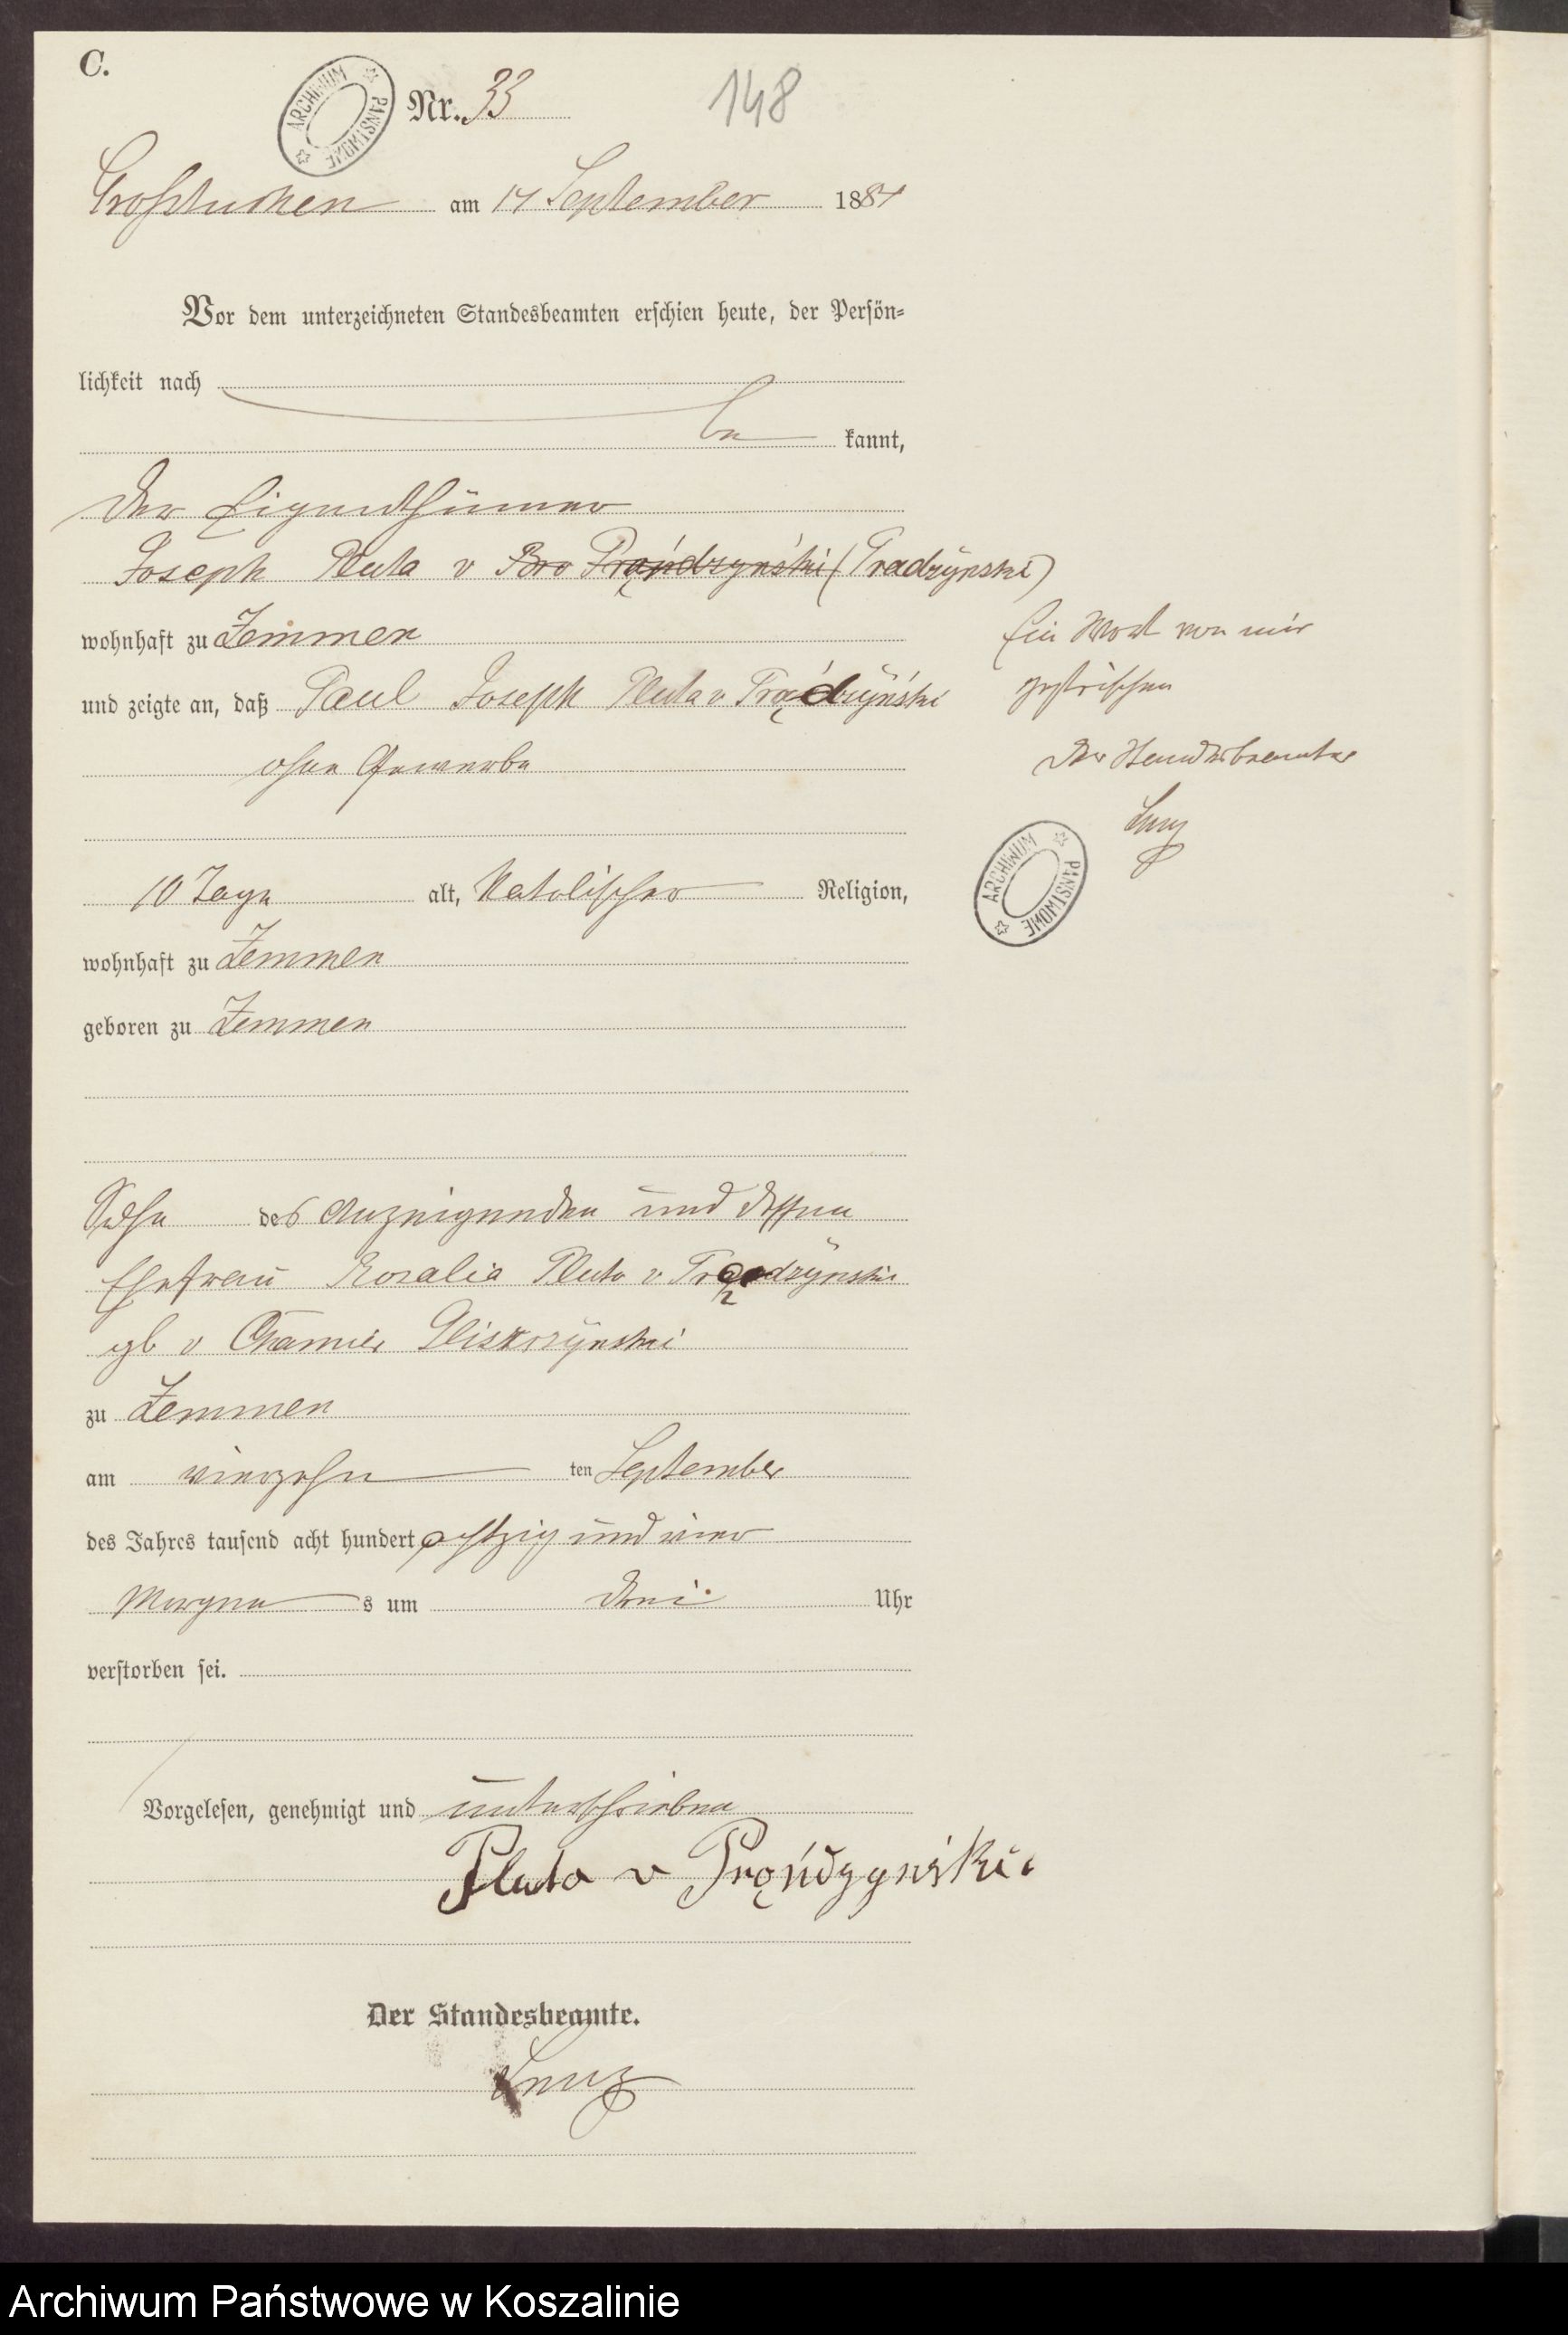 C.
ARCHIWUM PAŃSTWOWE
Nr. 33
148
Großtuchen am 14 September 1884
Vor dem unterzeichneten Standesbeamten erschien heute, der Persön-
lichkeit nach
be kannt,
Der Eigenthümer
Joseph Pluta v Pro Prąńdzyński (Pradzÿnski)
wohnhaft zu Zemmen
Ein Wort von mir
und zeigte an, daß Paul Joseph Pluta v Prądzÿński
gestrichen
ohne Gewerbe
Der Standesbeamte
Lenz
10 Tage alt, Katolischer Religion,
ARCHIWUM PAŃSTWOWE
wohnhaft zu Zemmen
geboren zu Zemmen
Sohn des Anzeigenden und dessen
Ehefrau Rosalia Pluta v Prądzÿnski
gb v Chamier Gliszczÿnski
zu Zemmen
am vierzehn ten September
des Jahres tausend acht hundert achtzig und vier
Morgen s um drei Uhr
verstorben sei.
Vorgelesen, genehmigt und unterschrieben
Pluta v Prąńdzyński
Der Standesbeamte.
Lenz
Archiwum Państwowe w Koszalinie